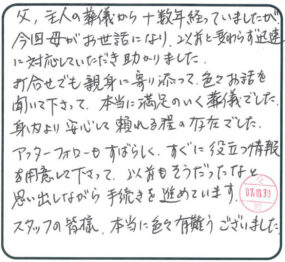 父、主人の葬儀から十数年経っていましたが
今回母がお世話になり、以前と変わらず迅速
に対応していただき助かりました。
打合せでも親身に寄り添って、色々お話を
聞いて下さって、本当に満足のいく葬儀でした。
身内より安心して頼れる程の存在でした。
アフターフォローもすばらしく、すぐに役立つ情報
を用意して下さって、以前もそうだったなと
思い出しながら手続きを進めています。
スタッフの皆様、本当に色々有難うございました